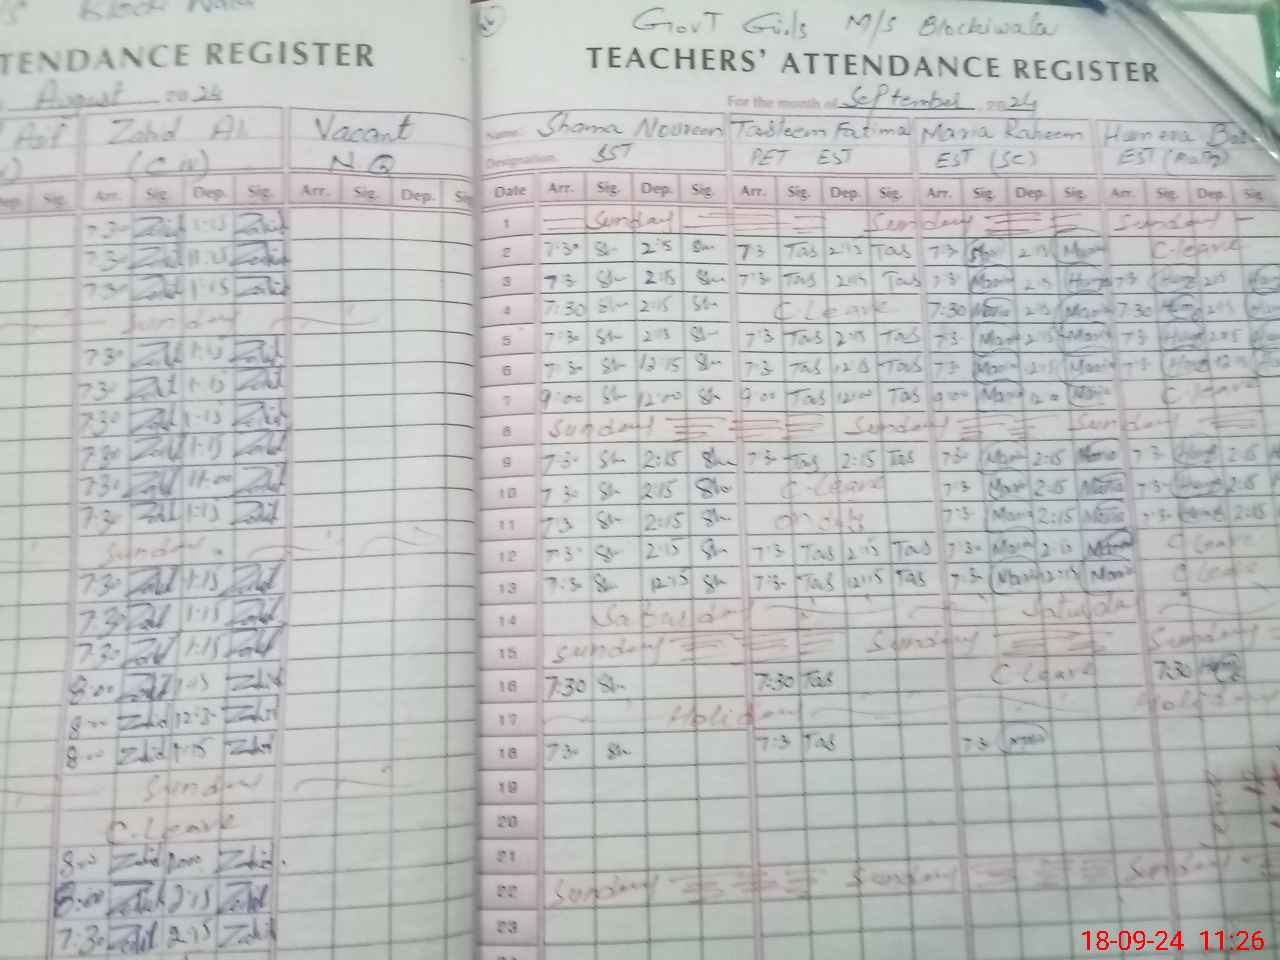 Block Wala
TENDANCE REGISTER
August 2024
Asif Zahid Ali Vacant
(C IV) N.Q
Dep. Sig. Arr. Sig. Dep. Sig. Arr. Sig. Dep. Sig
7:30 Zahid 1:15 Zahid
7:30 Zahid 11:15 Zahid
7:30 Zahid 1:15 Zahid
Sunday
7:30 Zahid 1:15 Zahid
7:30 Zahid 1:15 Zahid
7:30 Zahid 1:15 Zahid
7:30 Zahid 1:15 Zahid
7:30 Zahid 11:00 Zahid
7:30 Zahid 1:15 Zahid
Sunday
7:30 Zahid 1:15 Zahid
7:30 Zahid 1:15 Zahid
7:30 Zahid 1:15 Zahid
8:00 Zahid 1:15 Zahid
8:00 Zahid 12:30 Zahid
8:00 Zahid 1:15 Zahid
Sunday
C.Leave
8:00 Zahid Zahid
8:00 Zahid 2:15 Zahid
7:30 Zahid 2:15 Zahid
Govt Girls M/S Blockiwala
TEACHERS' ATTENDANCE REGISTER
For the month of September 2024
Name: Shama Noureen Tasleem Fatima Maria Raheem Humera
Designation SST PET EST EST (SC) EST (Math)
Date Arr. Sig. Dep. Sig. Arr. Sig. Dep. Sig. Arr. Sig. Dep. Sig. Arr. Sig. Dep. Sig.
1 Sunday Sunday Sunday
2 7:30 Sh 2:15 Sh 7:3 Tas 2:15 Tas 7:3 Maria 2:15 Maria C.leave
3 7:3 Sh 2:15 Sh 7:3 Tas 2:15 Tas 7:3 Maria 2:15 7:3 2:15
4 7:30 Sh 2:15 Sh C.Leave 7:30 Maria 2:15 Maria 7:30 2:15
5 7:30 Sh 2:15 Sh 7:3 Tas 2:15 Tas 7:3 Maria 2:15 Maria 7:3 2:15
6 7:30 Sh 12:15 Sh 7:3 Tas 12:15 Tas 7:3 Maria 12:15 Maria 7:3 12:15
7 9:00 Sh 12:00 Sh 9:00 Tas 12:00 Tas 9:00 Maria 12:00 Maria C.leave
8 Sunday Sunday Sunday
9 7:30 Sh 2:15 Sh 7:3 Tas 2:15 Tas 7:30 Maria 2:15 Maria 7:3 2:15
10 7:30 Sh 2:15 Sh C.Leave 7:3 Maria 2:15 Maria 7:3 2:15
11 7:3 Sh 2:15 Sh 7:3 Maria 2:15 Maria 7:3 2:15
12 7:3 Sh 2:15 Sh 7:3 Tas 2:15 Tas 7:30 Maria 2:15 Maria C leave
13 7:3 Sh 12:15 Sh 7:3 Tas 12:15 Tas 7:3 Maria 12:15 Maria C leave
14 Saturday Saturday
15 Sunday Sunday Sunday
16 7:30 Sh 7:30 Tas C Leave 7:30
17 Holiday Holiday
18 7:30 Sh 7:3 Tas 7:3 Maria
19
20
21
22 Sunday Sunday Sunday
23
18-09-24 11:26